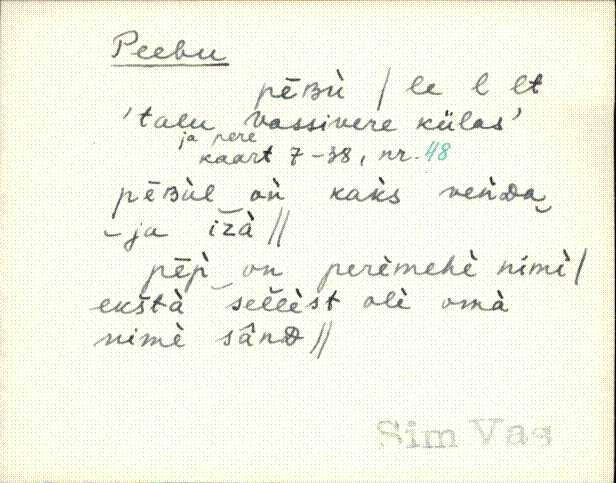 Peebu
pēʙù / le l lt
'talu Vassivere külas'
ja pere
kaart 7-38, nr. 48
pēʙùl on̄ kak̀s ven̄ᴅa
-ja izà //
pēp̀ on perèmehè nimì /
ekštà sellèst olì omà
nimè sânᴅ //
Sim Vas